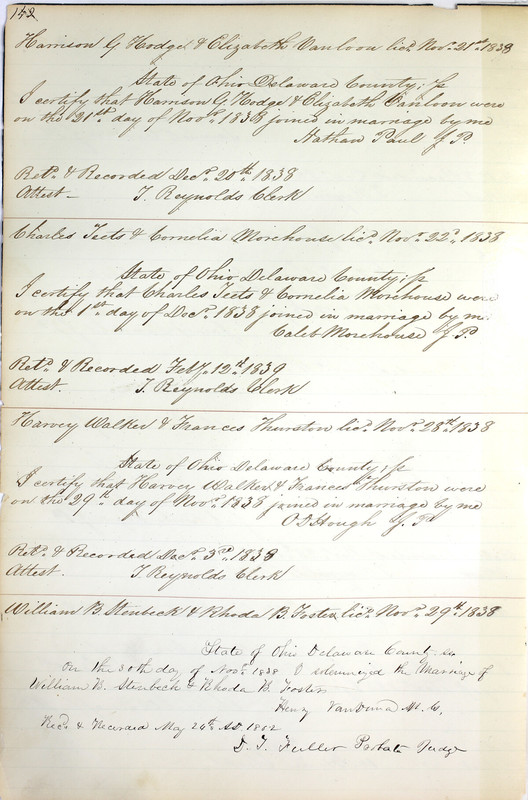 142
Harrison G Hodge & Elizabeth Vanloon licd. Novr. 21st 1838
State of Ohio Delaware County; ss
I certify that Harrison G Hodge & Elizabeth Vanloon were
on the 21st day of Novr. 1838 joined in marriage by me
Nathan Paul J. P.
Retd. & Recorded Decr. 20th 1838
Attest - T. Reynolds Clerk
Charles Teets & Cornelia Morehouse licd. Novr. 22d. 1838
State of Ohio Delaware County; ss
I certify that Charles Teets & Cornelia Morehouse were
on the 1st day of Decr. 1838 joined in marriage by me
Caleb Morehouse J. P.
Retd. & Recorded Feby. 12th 1839
Attest. T. Reynolds Clerk
Harvey Walker & Frances Thurston licd. Novr. 28th 1838
State of Ohio Delaware County; ss
I certify that Harvey Walker & Frances Thurston were
on the 29th day of Novr. 1838 joined in marriage by me
Hough J. P.
Retd. & Recorded Decr. 3rd 1838
Attest. T. Reynolds Clerk
William B Stenbeck & Rhoda B. Foster licd. Novr. 29th 1838
State of Ohio Delaware County ss
On the 30th day of Novr. 1838 I solemnized the Marriage of
William B. Stenbeck & Rhoda B. Foster
Henry M. G.
Recd. & Recorded May 24th AD.
D. T. Fuller Probate Judge